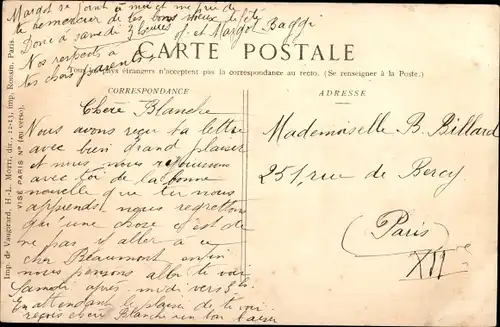 Margot se joint à moi et me prie de
te remercier de tes bons vœux de fête
Donc à samedi 3 heures J. et Margot Baggi
Nos respects à
tes chers parents.
CARTE POSTALE
Tous les pays étrangers n'acceptent pas la correspondance au recto. (Se renseigner à la Poste.)
CORRESPONDANCE
Chère Blanche
Nous avons reçu ta lettre
avec bien grand plaisir
et nous nous réjouissons
avec toi de la bonne
nouvelle que tu nous
apprends nous regrettons
qu'une chose c'est de
ne pas y aller à ce
cher Beaumont enfin
nous pensons aller te voir
Samedi après midi vers 3 h
En attendant le plaisir de te voir
reçois chère Blanche un bon baiser
ADRESSE
Mademoiselle B. Billard
251, rue de Bercy
Paris
XII eme
Imp. de Vaugirard, H.-L. Motti, dir., 12-13, imp. Ronsin, Paris.
VISÉ PARIS N° (au verso).